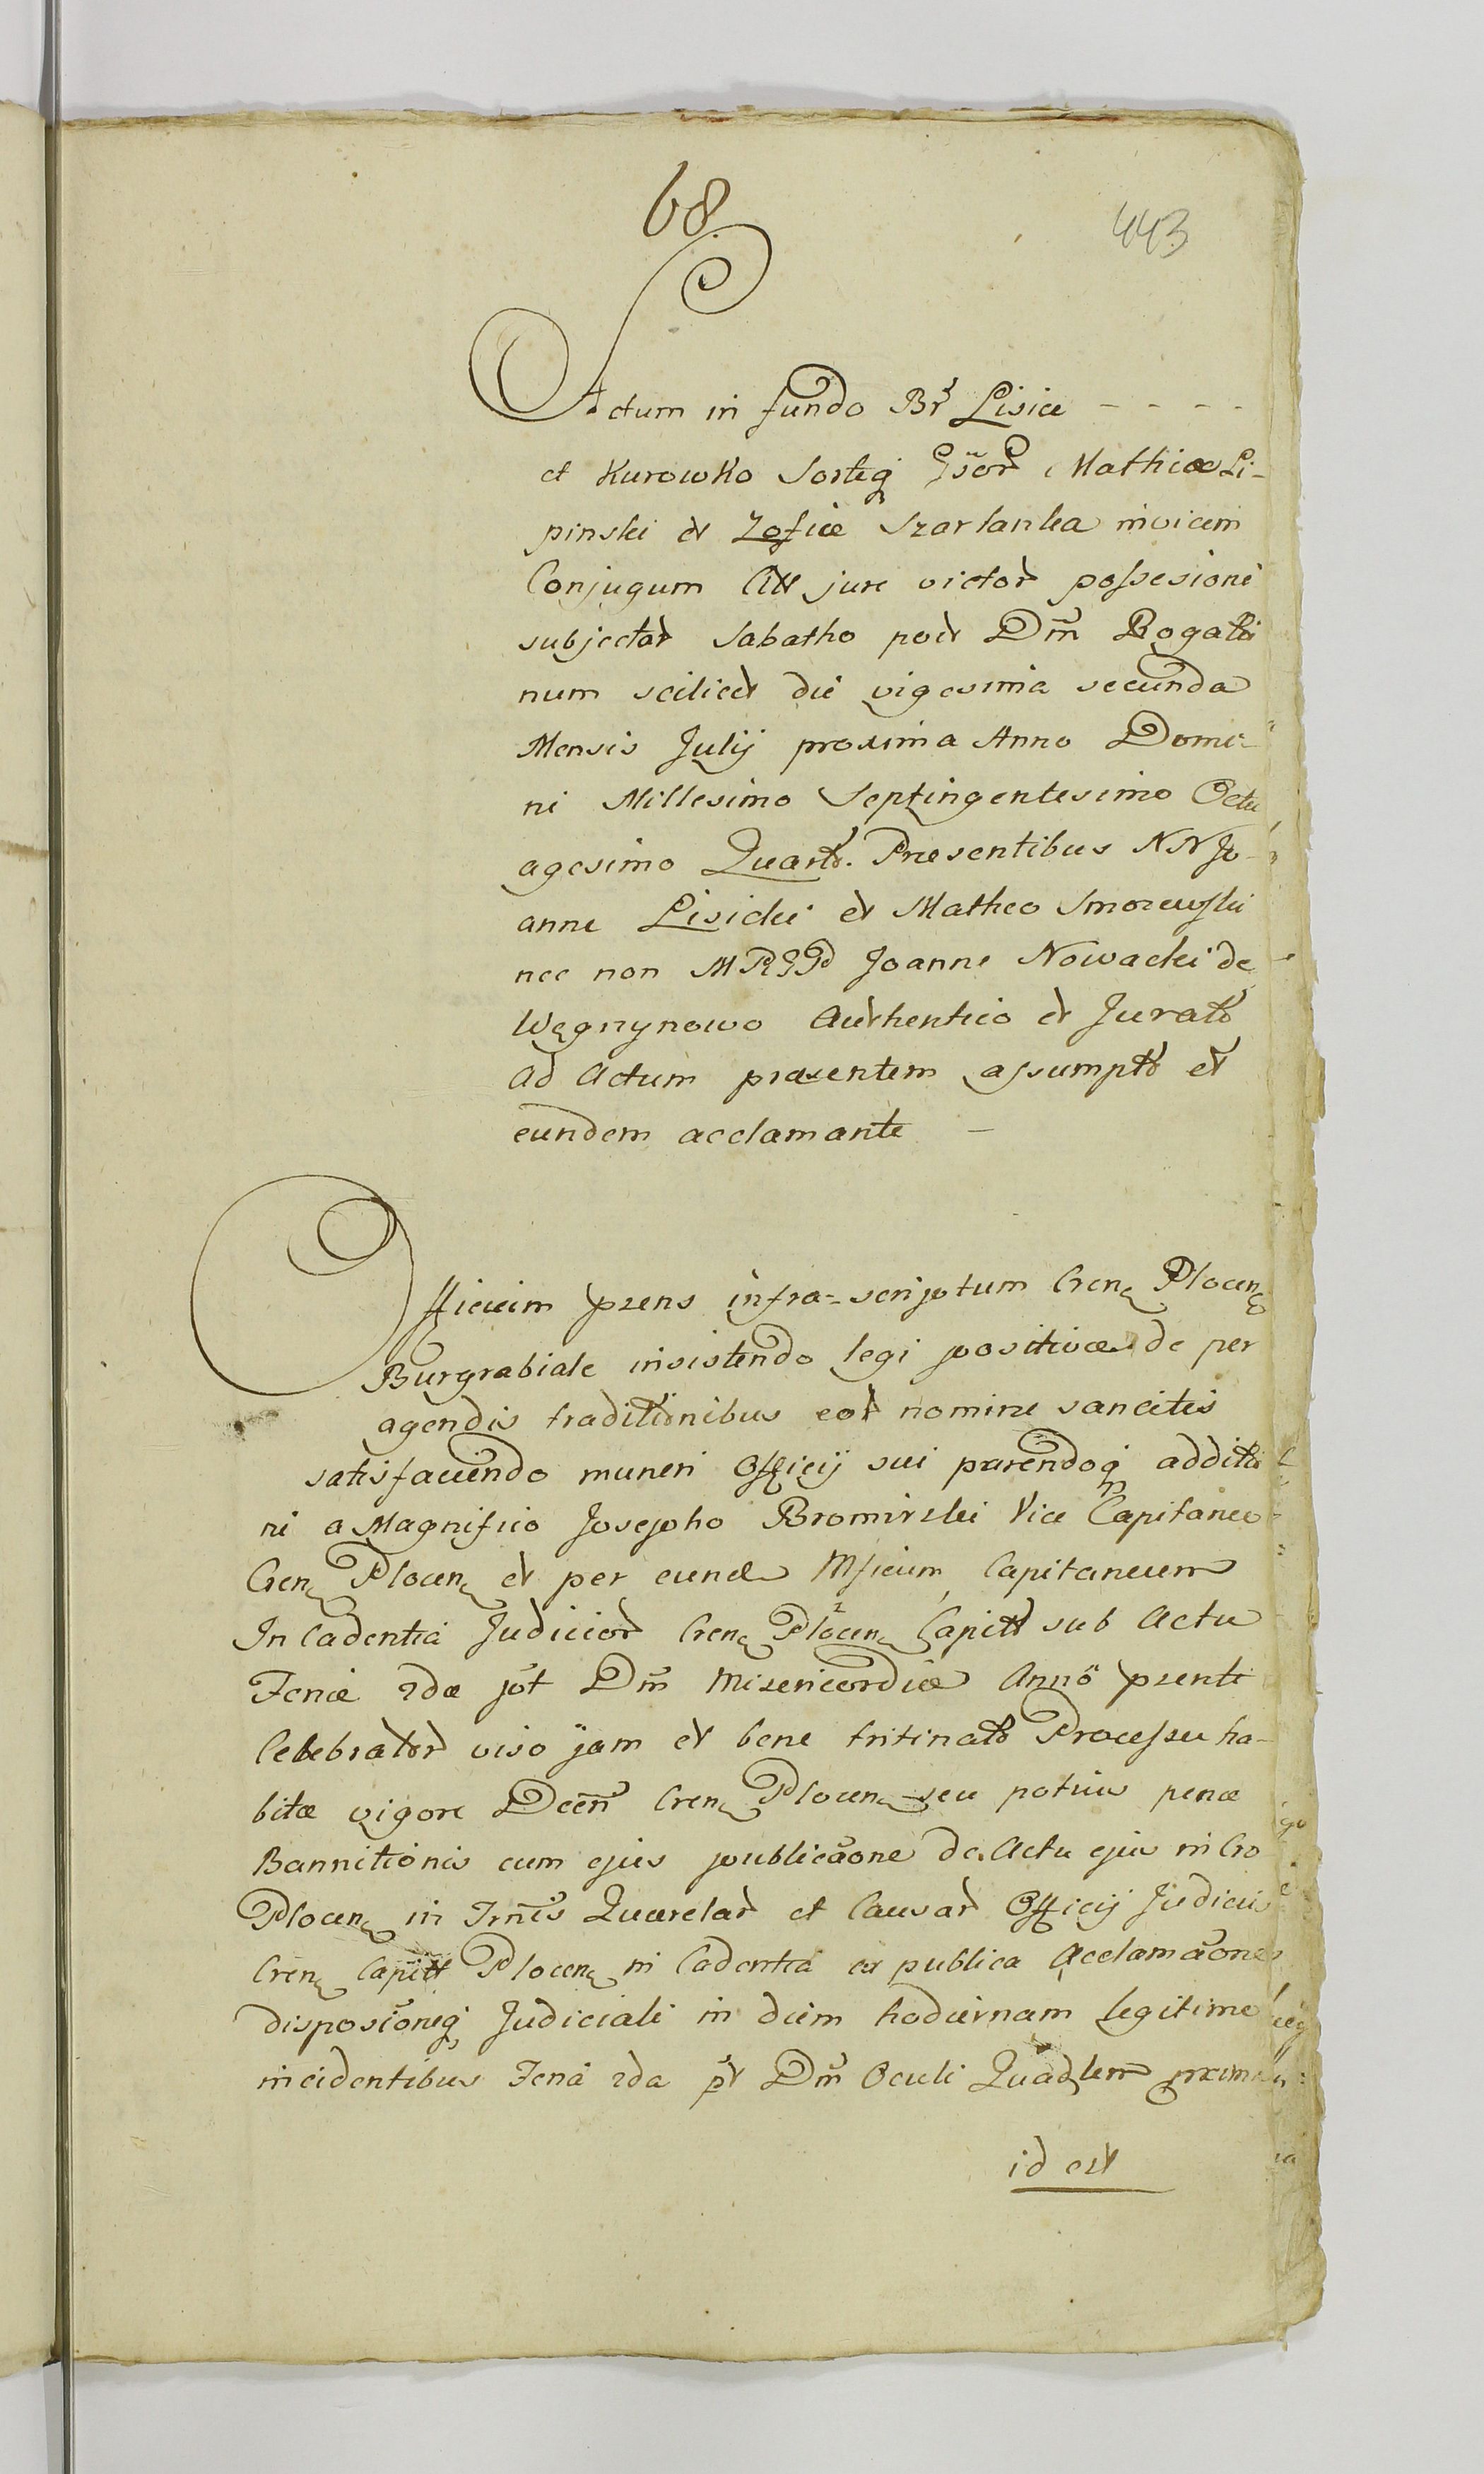 68.
443
Actum in fundo Br Lisice - - - -
et Kurowko Sorteq Gsor Mathiæ Li-
pinski et Zofiæ Szarlanka invicem
Conjugum Att jure victor possesioni
subjectar Sabatho post Dm Rogatio
num scilicet die vigesima secunda
Mensis Julij proxima Anno Domi-
ni Millesimo Septingentesimo Octu
agesimo Quarto. Præsentibus NN Jo-
anne Lisicki et Matheo Smorewski
nec non MRGD Joanne Nowacki de
Węgrzynowo Authentico et Jurato
ad Actum præsentem assumpto et
eundem acclamante —
Officium przens infra=scriptum Cren Plocen
Burgrabiale insistendo legi positivæ de per
agendis traditionibus eor nomine sancitis
satisfaciendo muneri Officij sui parendoq additio
ni a Magnifico Josepho Bromirski Vice Capitaneo
Cren Plocen et per eund Mficum Capitaneum
In Cadentia Judicior Cren Plocen Capitt sub Actu
Feriæ 2dæ pot Dm Misericordiæ Anno przenti
Celebrator viso jam et bene tritinato Processu ha-
bitæ vigore Decen Cren Plocen seu potius penæ
Bannitionis cum ejus publicaone de Actu ejus in Cro
Plocen in Trnis Quærelar et Causar Officij Judicij
Cren Capitt Plocen in Cadentia ex publica Acclamaone
disposioneq Judiciali in diem hodiernam legitime
incidentibus Feria 2da pt Dm Oculi Quadlem proxima
id est